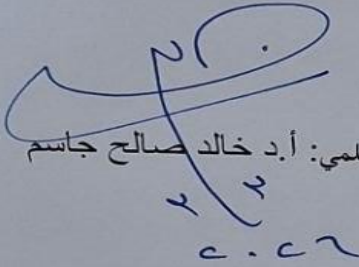 لمي: أ.د خالد صالح جاسم
٢٠٢٦